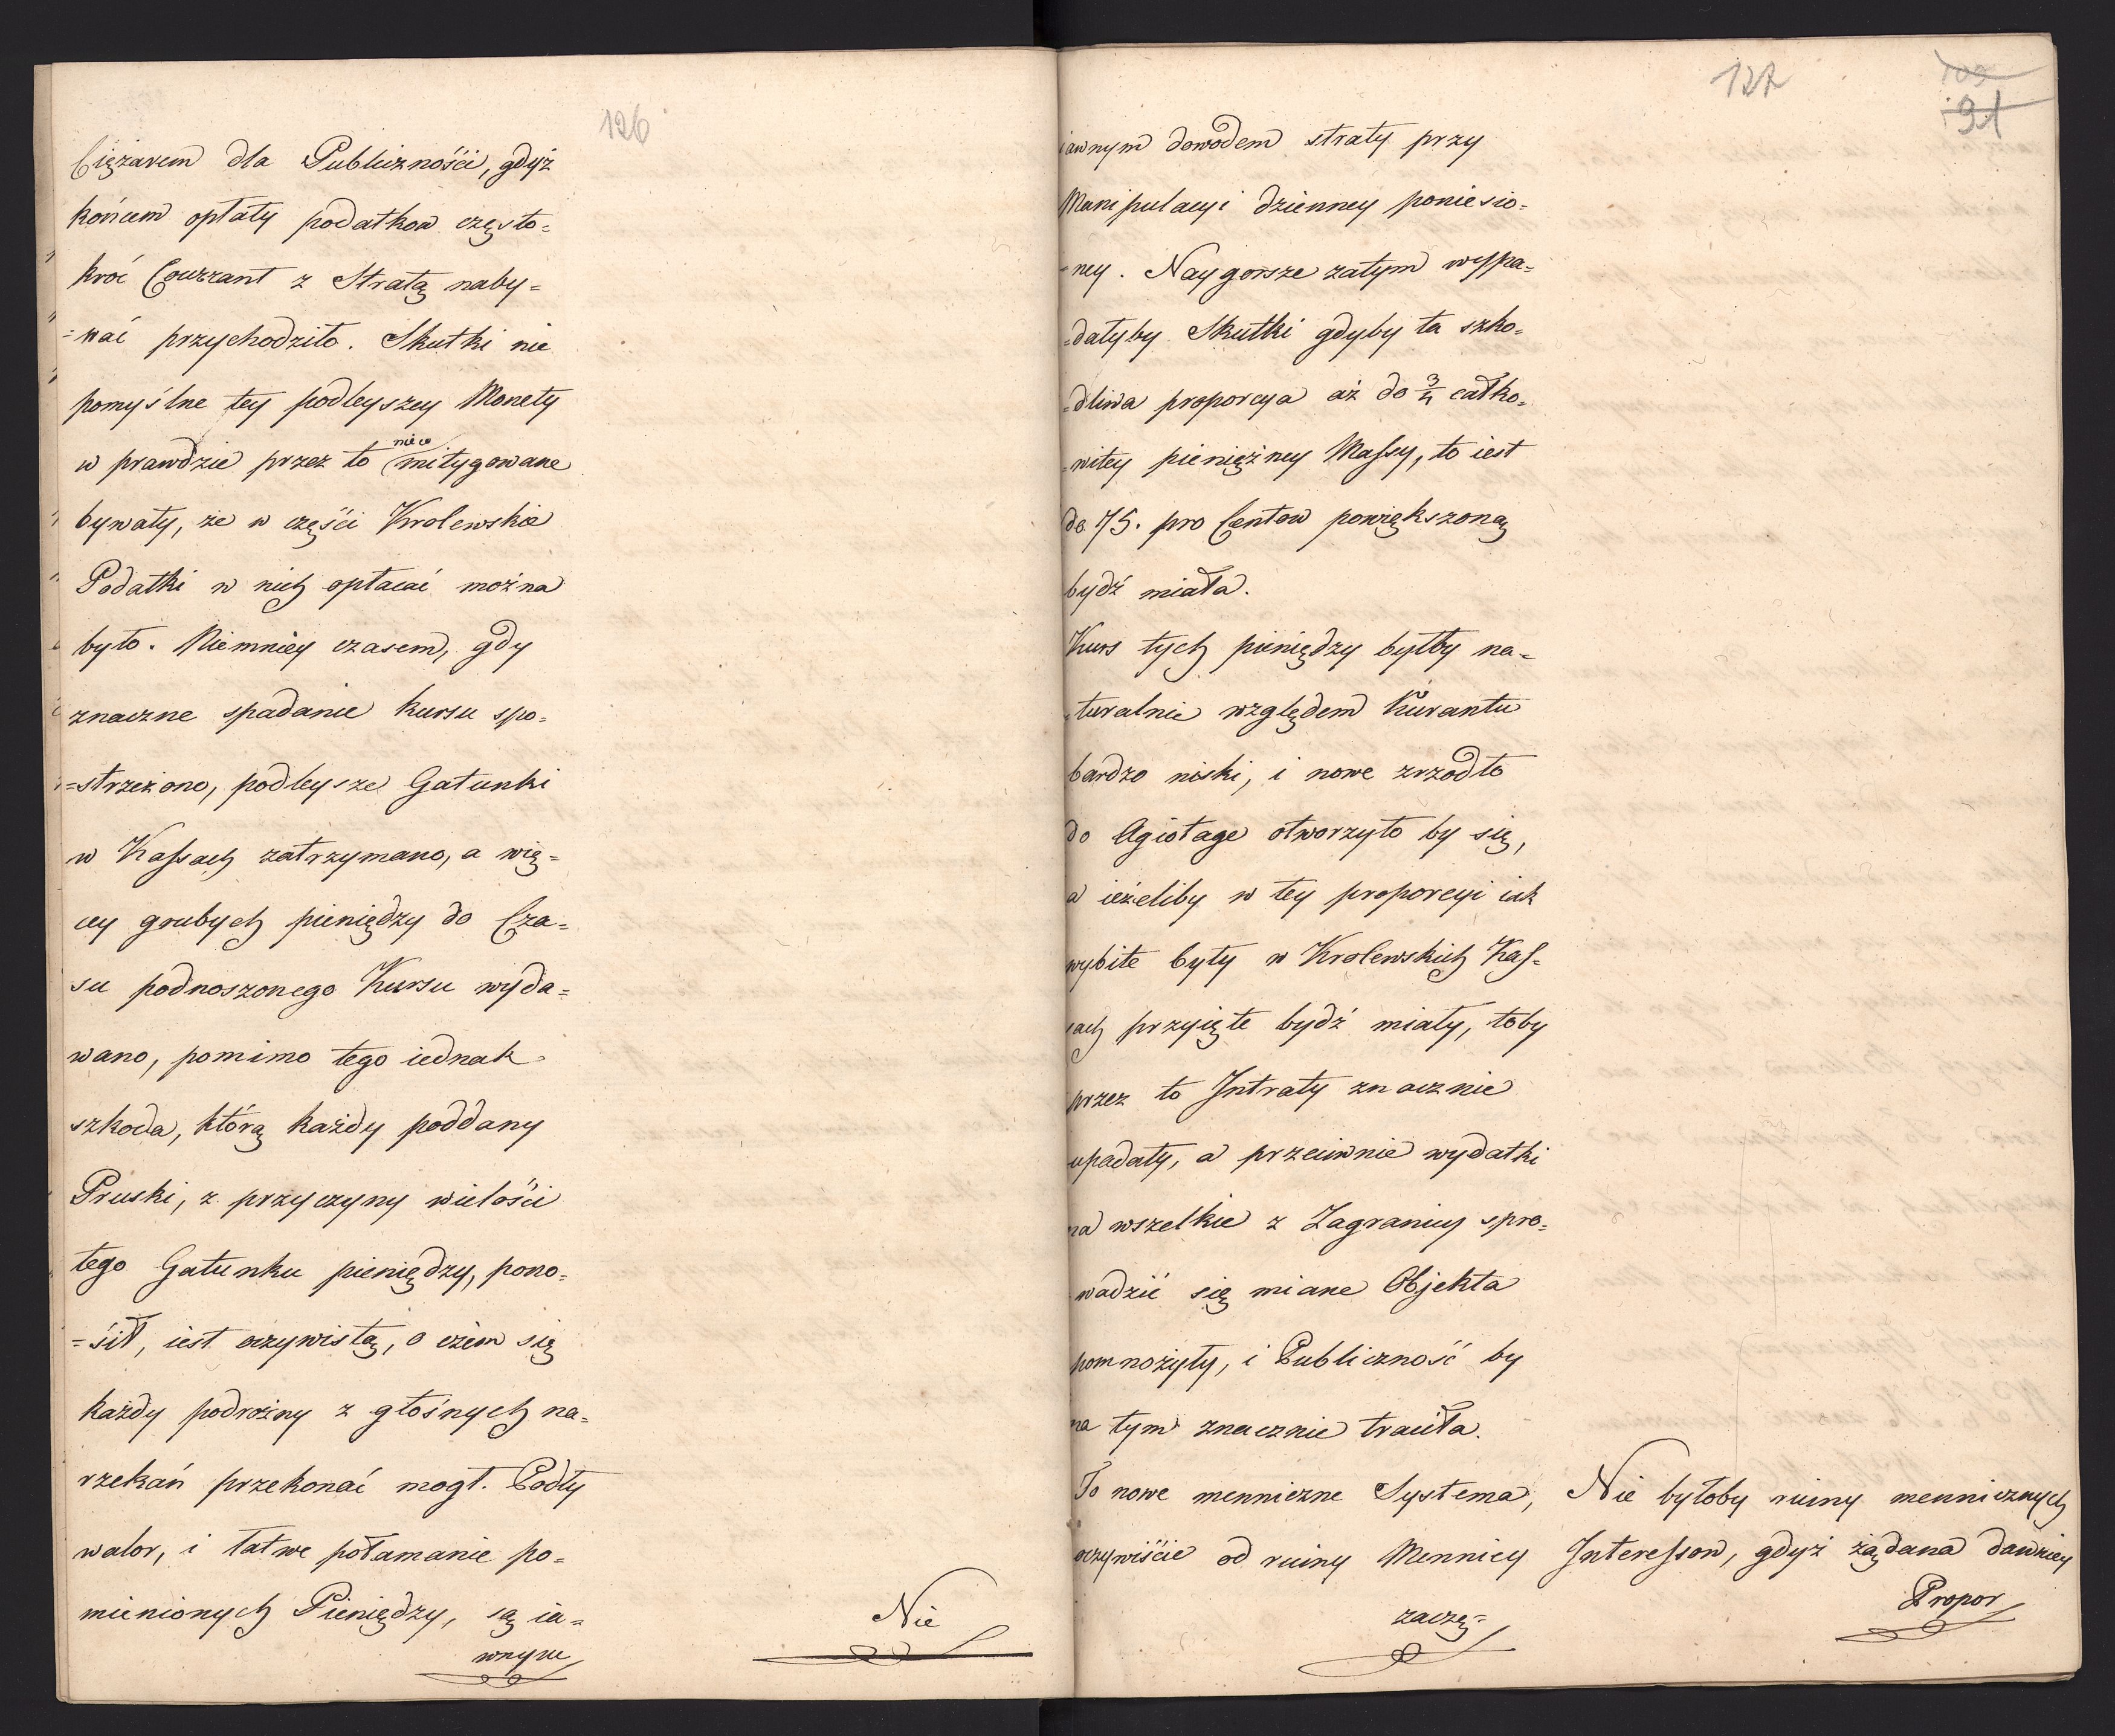 126
Ciężarem dla Publicznośći, gdyż
końcem opłaty podatkow często=
kroć Courrant z Stratą naby=
=wać przychodziło. Skutki nie
pomyślne tey podleyszey Monety
w prawdzie przez to nieco mitygowane
bywały, że w częśći Krolewskie
Podatki w nich opłacać można
było. Niemniey czasem, gdy
znaczne spadanie kursu spo=
=strzeżono, podleysze Gatunki
w Kassach zatrzymano, a wię=
cey grubych pieniędzy do Cza=
su podnoszonego Kursu wyda=
wano, pomimo tego iednak
szkoda, którą każdy poddany
Pruski, z przyczyny wielośći
tego Gatunku pieniędzy, pono=
=śił, iest oczywistą, o czem się
każdy podrożny z głośnych na=
rzekań przekonać mogł. Podły
walor, i łatwe połamanie po=
mienionych Pieniędzy, są ia=
wnym
Nie
127
109
91
iawnym dowodem straty przy
Manipulacyi dzienney poniesio=
=ney. Naygorsze zatym wypa=
=dałyby Skutki gdyby ta szko=
=dliwa proporcya aż do 3/4 całko=
=witey pieniężney Massy, to iest
do 75. pro Centow powiększoną
bydź miała.
Kurs tych pieniędzy byłby na=
=turalnie względem Kurantu
bardzo niski, i nowe zrzodło
do Agiotage otworzyło by się,
a ieżeliby w tey proporcyi iak
wybite były w Krolewskich Kas=
sach przyięte bydź miały, toby
przez to Intraty znacznie
upadały, a przeciwnie wydatki
na wszelkie z Zagranicy spro=
wadzić się miane Objekta
pomnożyły, i Publiczność by
na tym znacznie traciła.
To nowe mennicze Systema,
oczywiśćie od ruiny Mennicy
zaczę=
Nie byłoby ruiny mennicznych
Interessow, gdyż żądana dawniey
Propor